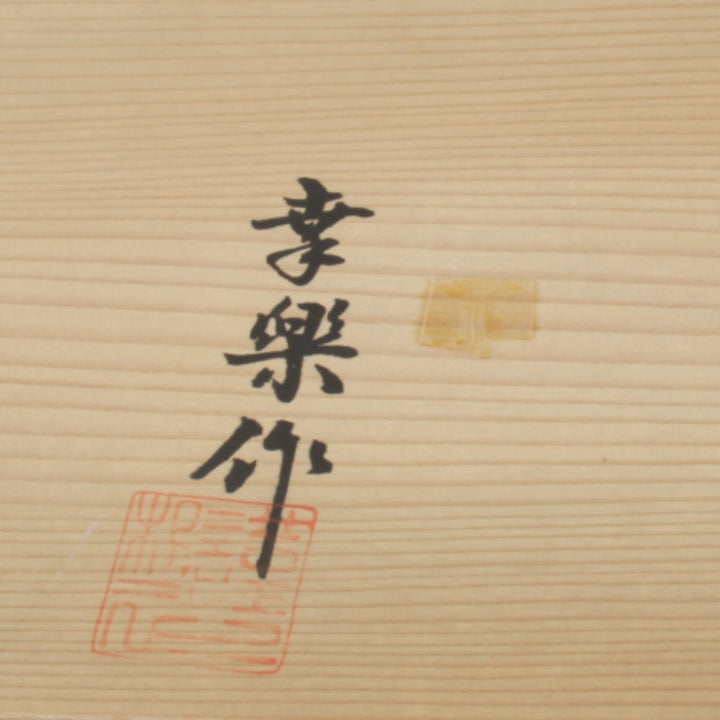 幸樂作